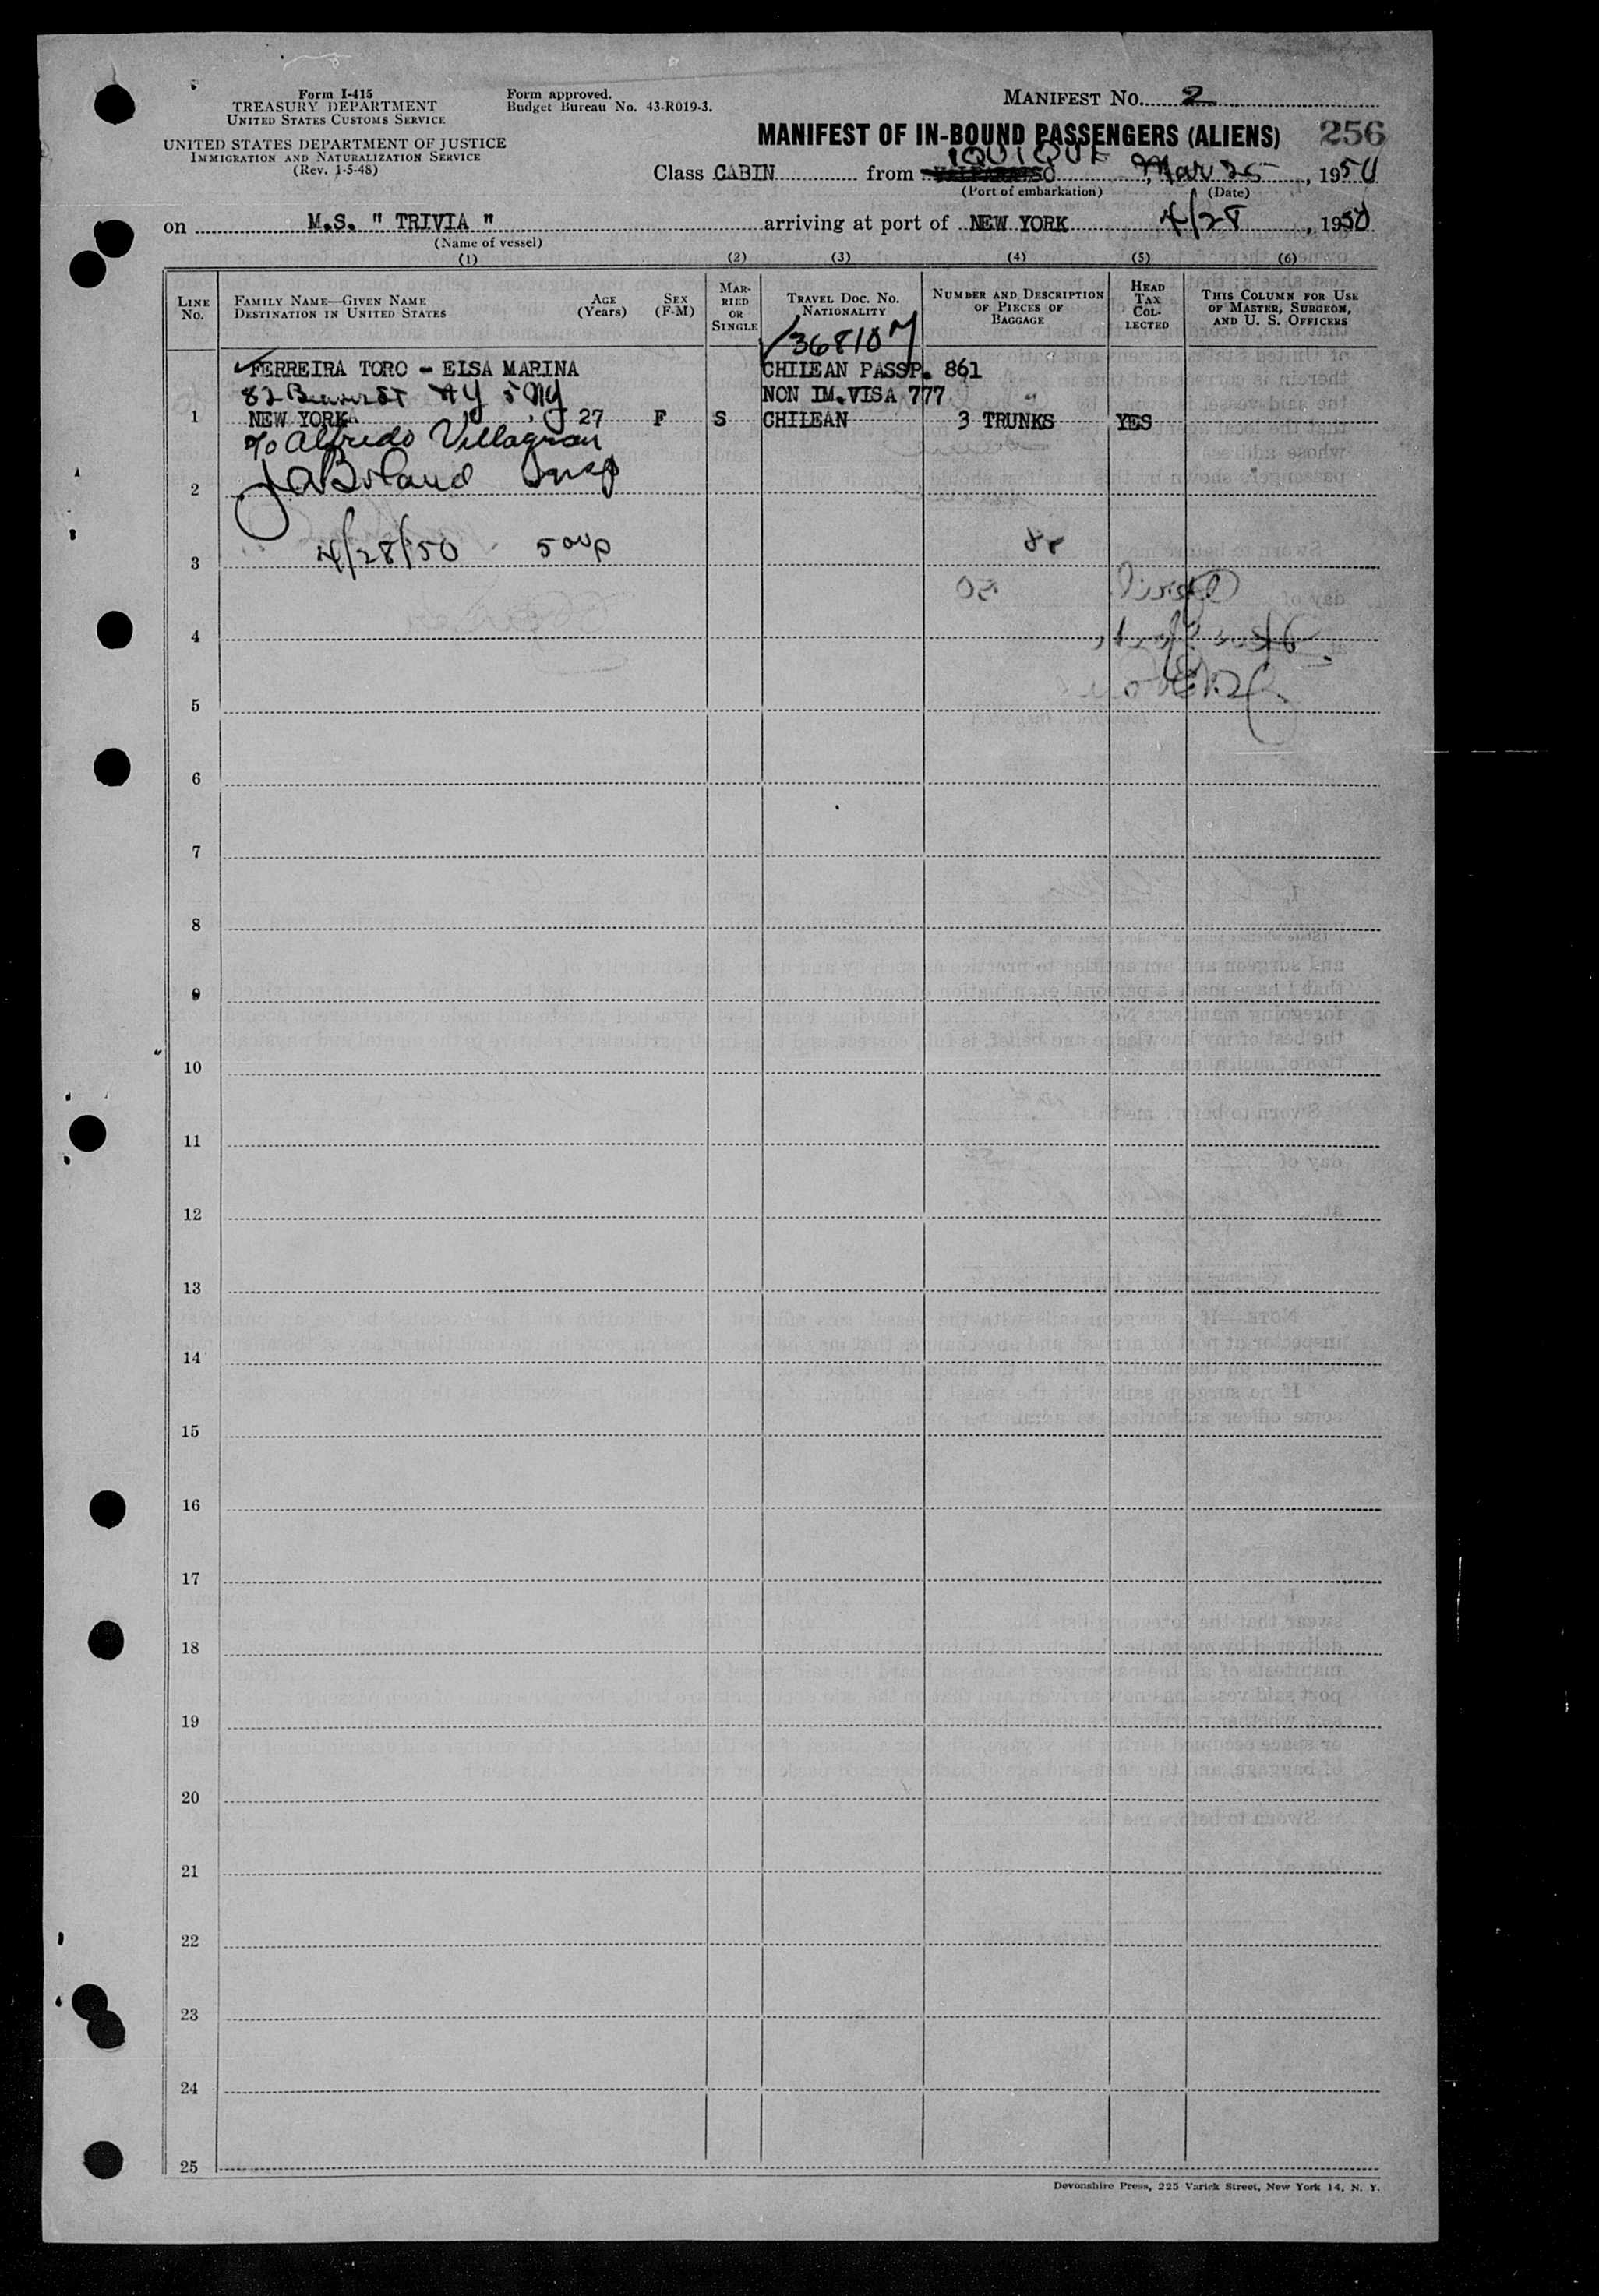 Form I-415
TREASURY DEPARTMENT
UNITED STATES CUSTOMS SERVICE
UNITED STATES DEPARTMENT OF JUSTICE
IMMIGRATION AND NATURALIZATION SERVICE
(Rev. 1-5-48)
Form approved.
Budget Bureau No. 43-R019-3.
MANIFEST NO. 2
MANIFEST OF IN-BOUND PASSENGERS (ALIENS) 256
IQUIQUE
Class CABIN from VALPARAISO, Mar 25, 1950
(Port of embarkation) (Date)
on M.S. " TRIVIA " arriving at port of NEW YORK 4/28, 1950
(Name of vessel)
(1) (2) (3) (4) (5) (6)
LINE No.
FAMILY NAME—GIVEN NAME
DESTINATION IN UNITED STATES
AGE (Years)
SEX (F-M)
MARRIED OR SINGLE
TRAVEL DOC. NO.
NATIONALITY
NUMBER AND DESCRIPTION OF PIECES OF BAGGAGE
HEAD TAX COLLECTED
THIS COLUMN FOR USE OF MASTER, SURGEON, AND U. S. OFFICERS
FERREIRA TORO - ELSA MARINA CHILEAN PASSP. 861
82 NON IM. VISA 777
1 NEW YORK 27 F S CHILEAN 3 TRUNKS YES
c/o Alfredo Villagran
JA Boland Insp
2
4/28/50
3
4
5
6
7
8
9
10
11
12
13
14
15
16
17
18
19
20
21
22
23
24
25
Devonshire Press, 225 Varick Street, New York 14, N. Y.